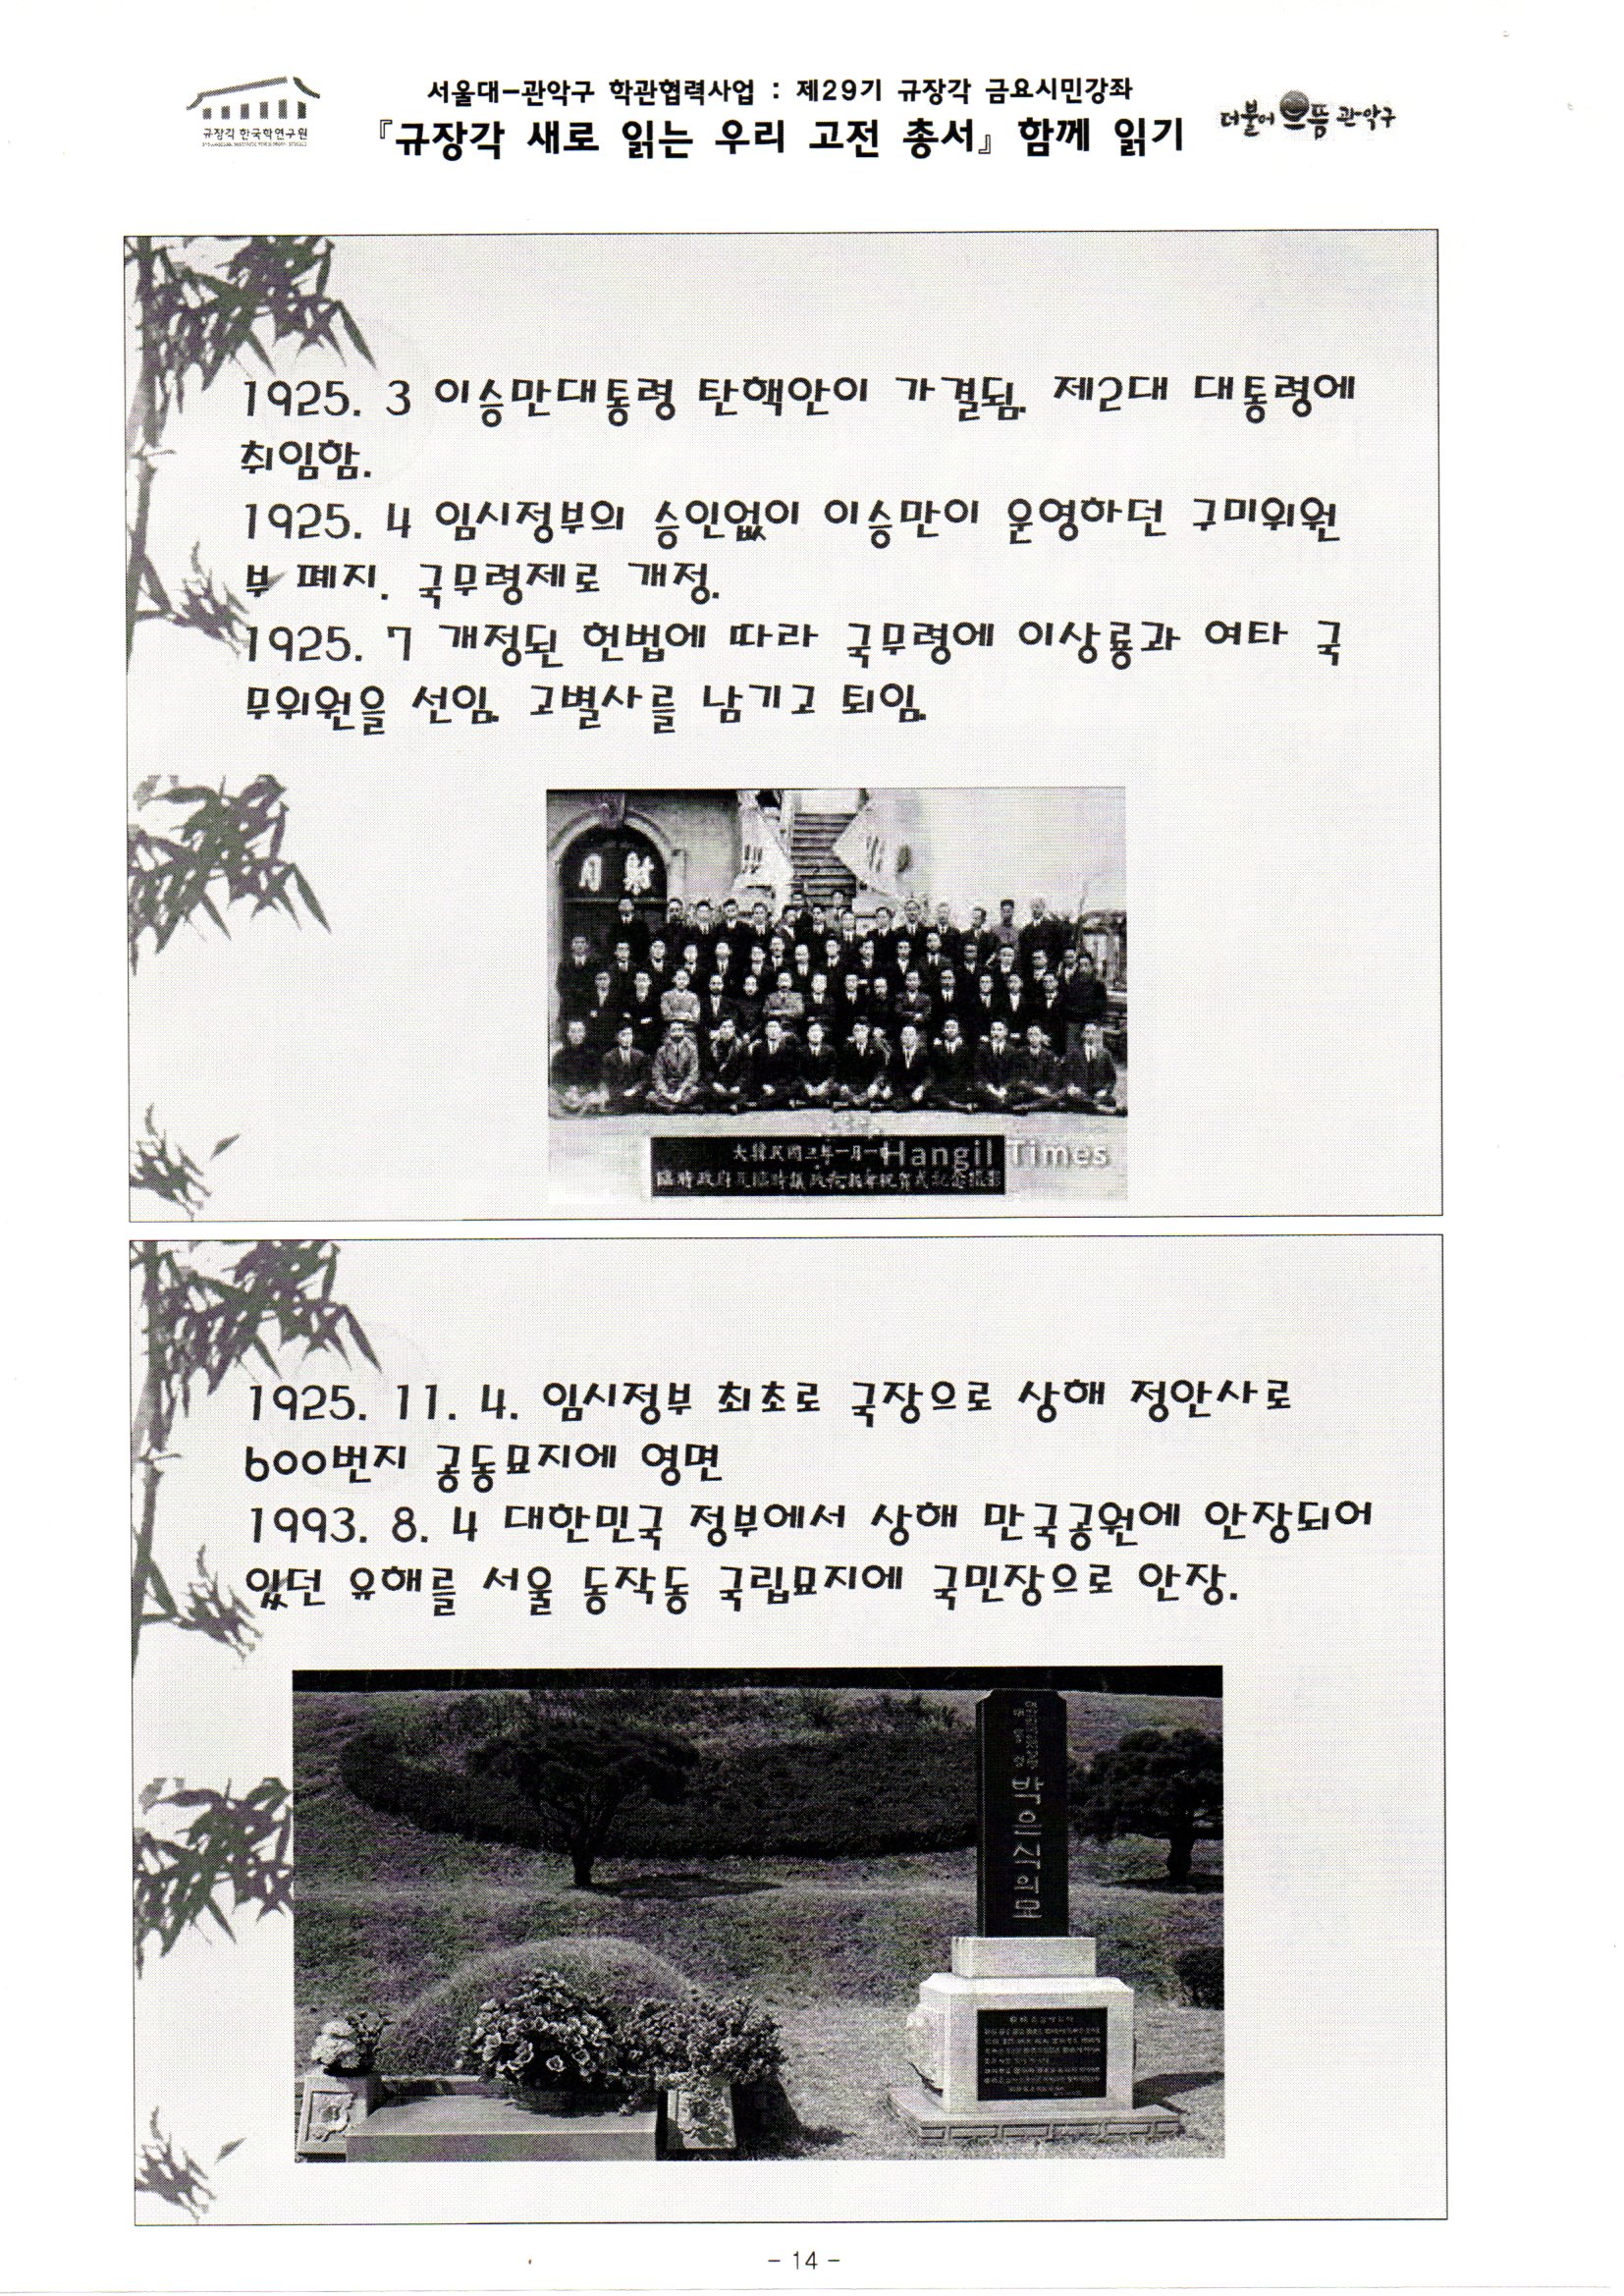 규장각 한국학연구원
서울대-관악구 학관협력사업 : 제29기 규장각 금요시민강좌
『규장각 새로 읽는 우리 고전 총서』 함께 읽기
더불어 으뜸 관악구
1925. 3 이승만대통령 탄핵안이 가결됨. 제2대 대통령에
취임함.
1925. 4 임시정부의 승인없이 이승만이 운영하던 구미위원
부 폐지. 국무령제로 개정.
1925. 7 개정된 헌법에 따라 국무령에 이상룡과 여타 국
무위원을 선임. 고별사를 남기고 퇴임.
月 財
大韓民國三年一月一日
Hangil Times
臨時政府及臨時議政院新年祝賀式記念撮影
1925. 11. 4. 임시정부 최초로 국장으로 상해 정안사로
600번지 공동묘지에 영면
1993. 8. 4 대한민국 정부에서 상해 만국공원에 안장되어
있던 유해를 서울 동작동 국립묘지에 국민장으로 안장.
박은식의묘
- 14 -